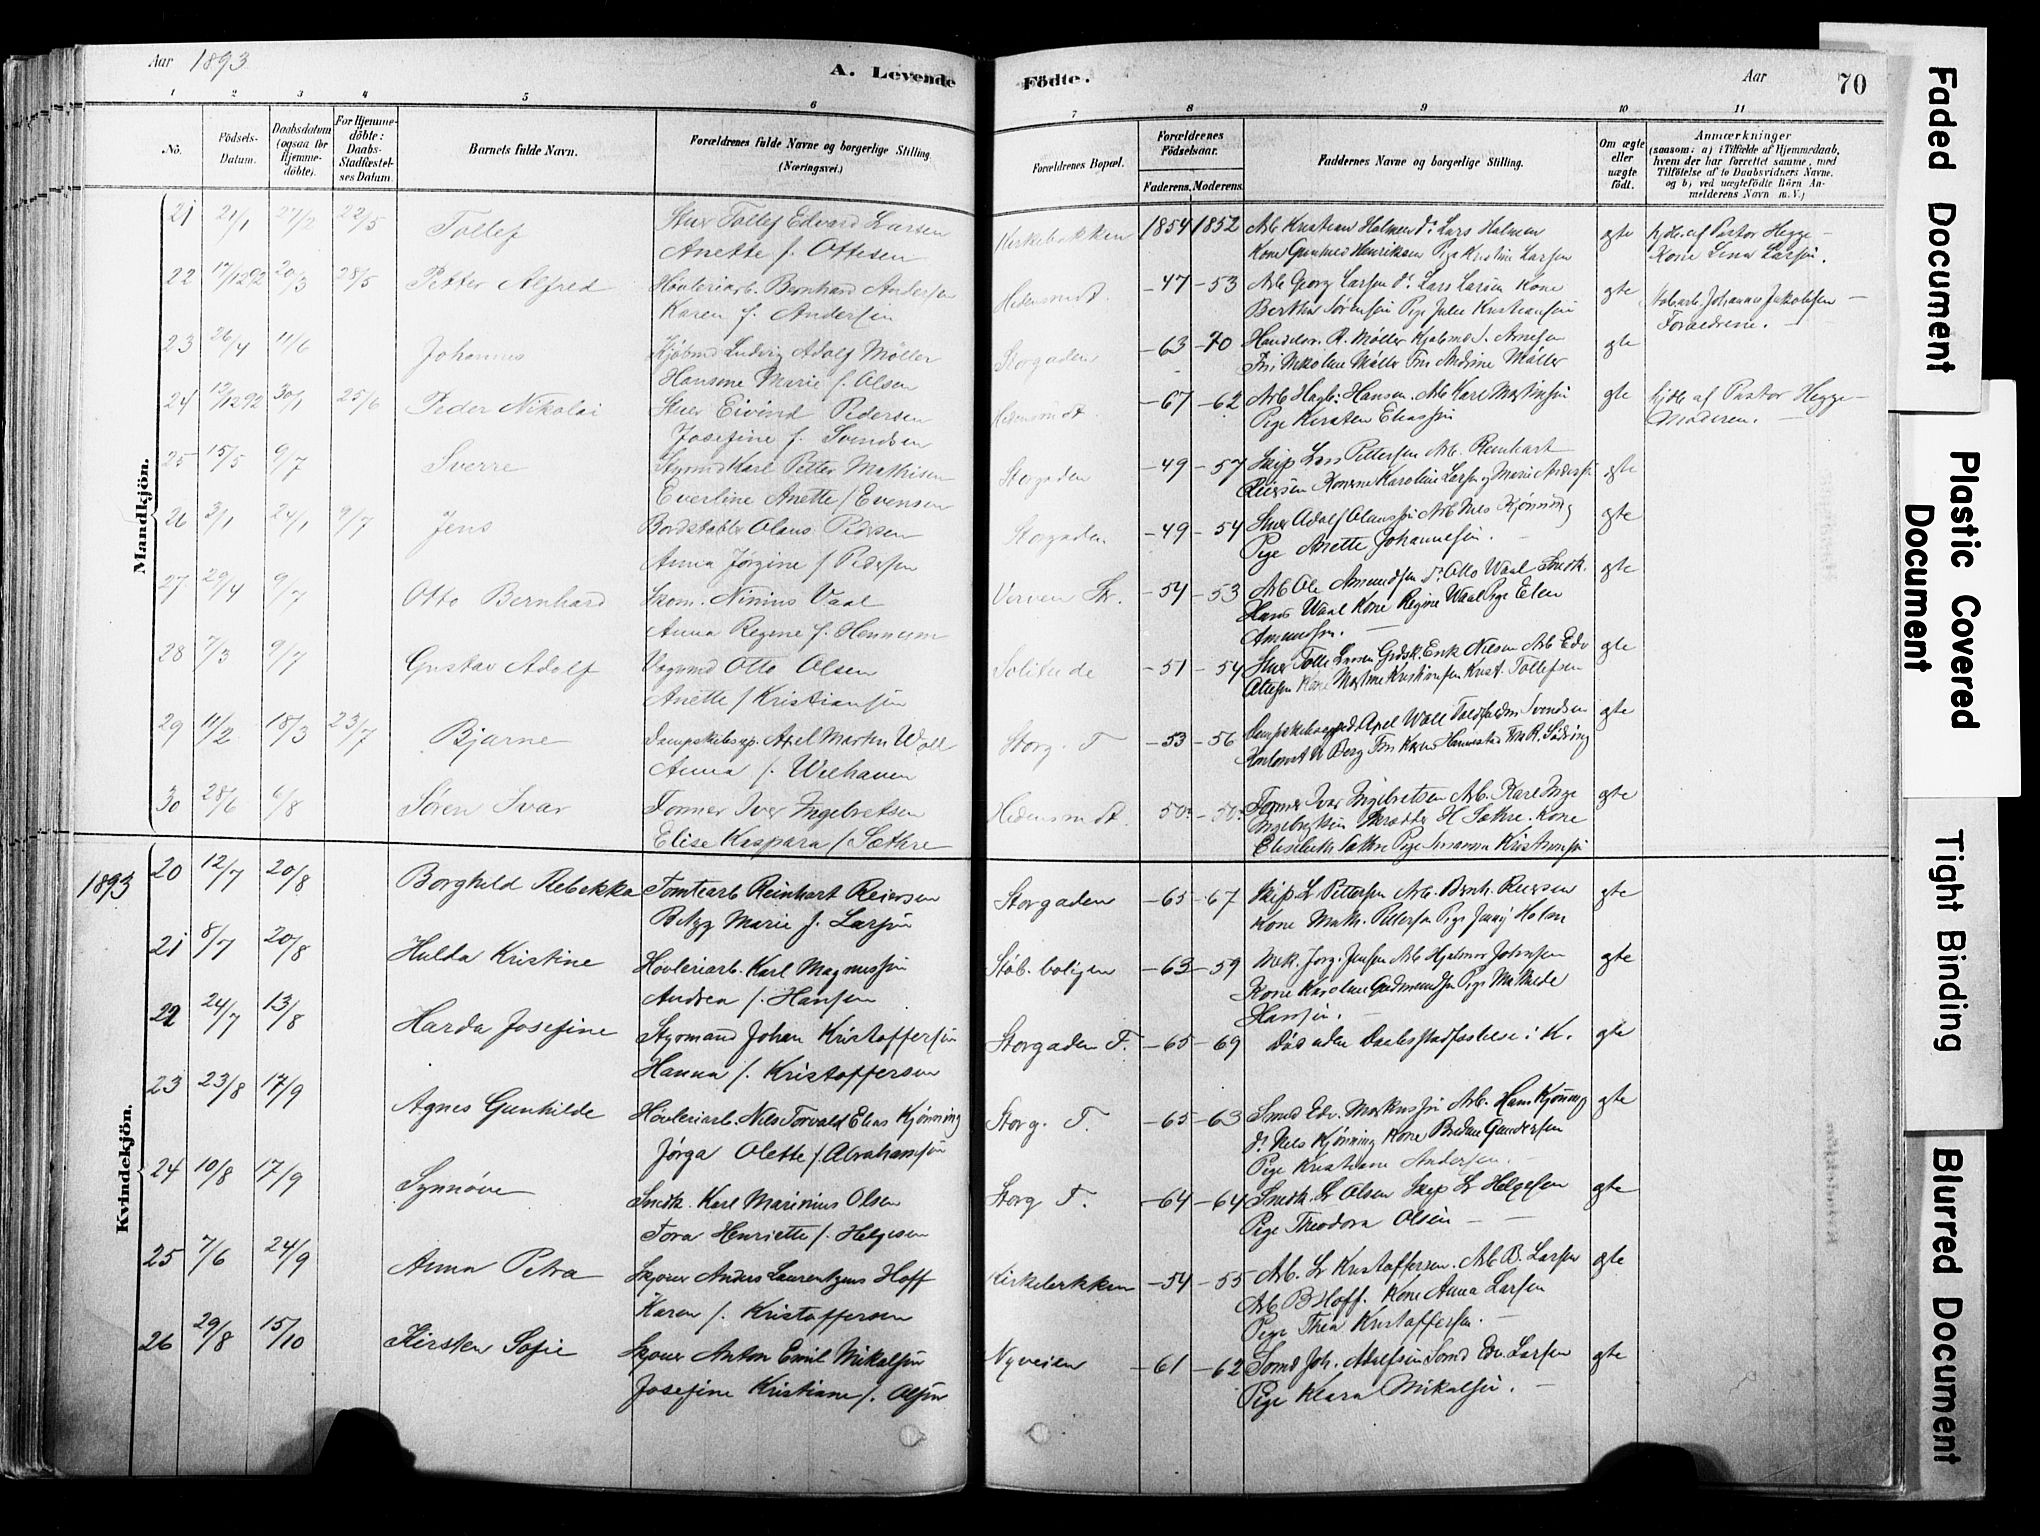 Aar 1893
A. Levende
Fødte.
Aar
70
1 2 3 4 5 6 7 8 9 10 11
No.
Födsels-Datum.
Daabsdatum (ogsaa for Hjemme-döbte).
For Hjemme-döbte: Daabs-Stadfæstel-ses Datum.
Barnets fulde Navn.
Forældrenes fulde Navne og borgerlige Stilling. (Næringsvei.)
Forældrenes Bopæl.
Forældrenes Födselsaar.
Faderens. Moderens.
Faddernes Navne og borgerlige Stilling.
Om ægte eller uægte födt.
Anmærkninger
(saasom: a) i Tilfælde af Hjemmedaab,
hvem der har forrettet samme, med
Tilföielse af to Daabsvidners Navne.
og b) ved uægtefödte Börn An-
melderens Navn m. V.)
Mandkjön.
21 21/1 27/2 22/5 Tollef Stuer Tollef Edvard Larsen Kirkebakken 1854 1852 Arb Kristian Halmen Do Lars Halmen gte hjdb. af Pastor Hegge -
Anette f. Ottesen Kone Gunhild Henriksen Pige Kristine Larsen Kone Lina Larsen.
22 17/12 92 20/3 28/5 Petter Alfred Høvleriarb. Bernhard Andersen -47 -53 Arb Georg Larsen Do Lars Larsen Kone gte Johannes Jakobsen -
Karen f. Andersen Berthe Sørensen Pige Julie Kristiansen Forældrene.
23 26/4 11/6 Johannes Kjøbmd Ludvig Adolf Møller Storgaden -63 -70 Møller gte
Hansine Marie f. Olsen Frk Nikoline Møller Frk Andrine Møller
24 12/12 92 30/1 25/6 Peder Nikolai Stuer Eivind Pedersen -67 -62 Arb Hagb. Hansen. Arb Karl Martinsen gte hjdb af Pastor Hegge -
Josefine f. Svendsen Pige Kirsten Eliassen Moderen.
25 15/5 9/7 Sverre Styrmd Karl Petter Mathisen Storgaden -49 -57 Skip Lars Pettersen Arb. Reinhart gte
Everline Anette f Evensen Reiersen Konerne Karoline Larsen og Marie Anders
26 3/1 24/1 9/7 Jens Bordstabler Olaus Pedersen Storgaden -49 -54 Stuer Adolf Olaussen Arb Nils Kjønning gte
Anna Jørgine f Pedersen Pige Anette Johannesen.
27 29/4 9/7 Otto Bernhard Skom. Ninius Vaal Verven Str. -54 -53 Arb Ole Amundsen Do Otto Waal Smedk. gte
Anna Regine f. Hennum Hans Waal Kone Regine Waal Pige Elen
Amundsen.
28 7/3 9/7 Gustav Adolf Vognmd Otto Olsen Solitude -51 -54 Stuer Tolle Larsen Erik Nilsen Arb Edv gte
Anette f Kristiansen Kone Martine Kristiansen Krist. Tollefsen
29 11/2 18/3 23/7 Bjarne Axel Martin Woll Storg. T -53 -56 Axel Woll Svendsen gte
Anna f. Welhaven Berg Frk Karen
30 28/6 6/8 Søren Ivar Former Iver Ingebretsen -50. -50. Former Iver Ingebretsen Arb. Karl Inge gte
Elise Kaspara f Sæthre Ingebrigtsen Skrædder H Sæthre. Kone
Elisabeth Sæthre Pige Susanna Kristiansen
Kvindekjön.
1893 20 12/7 20/8 Borghild Rebekka Tomtearb Reinhart Reiersen Storgaden -65 -67 Skip. L Pettersen Arb. Bernh. Reiersen gte
Betzy Marie f. Larsen Kone Math. Pettersen Pige Jenny Holm
21 8/7 20/8 Hulda Kristine Høvleriarb. Karl Magnussen Støb. boligen -63 -59 Mek. Jørg. Jensen Arb Hjalmar Johnsen gte
Andrea f. Hansen Kone Karoline Gudmundsen Pige Mathilde
Hansen.
22 24/7 13/8 Harda Josefine Styrmand Johan Kristoffersen Storgaden T. -65 -69 Død uden Daabsstadfæstelse i K. gte
Hanna f. Kristoffersen
23 23/8 17/9 Agnes Gunhilde Høvleriarb. Nils Torvald Elias Kjønning Storg. T. -65 -63 Smed Edv. Markussen Arb. Hans Kjønning gte
Jørga Olette f. Abrahamsen Do Nels Kjønning Kone Bredine Gundersen
Pige Kristiane Andersen.
24 10/8 17/9 Synnøve Smedk. Karl Marinius Olsen Storg T. -64 -64 Smedk. L Olsen Skip L Helgesen gte
Tora Henriette f. Helgesen Pige Theodora Olsen
25 7/6 24/9 Anna Petra Skjouer Anders Laurentzius Hoff Kirkebakken -54 -55 Arb. L Kristoffersen. Arb B. Larsen gte
Karen f. Kristoffersen Arb B Hoff. Kone Anna Larsen
Pige Thea Kristoffersen.
26 29/8 15/10 Kirsten Sofie Skjouer Anton Emil Mikalsen Nyveien -61 -62 Sømd Joh. Adolfsen Sømd Edv. Larsen gte
Josefine Kristiane f. Olsen Pige Klara Mikalsen.
Faded Document
Plastic Covered Document
Tight Binding
Blurred Document